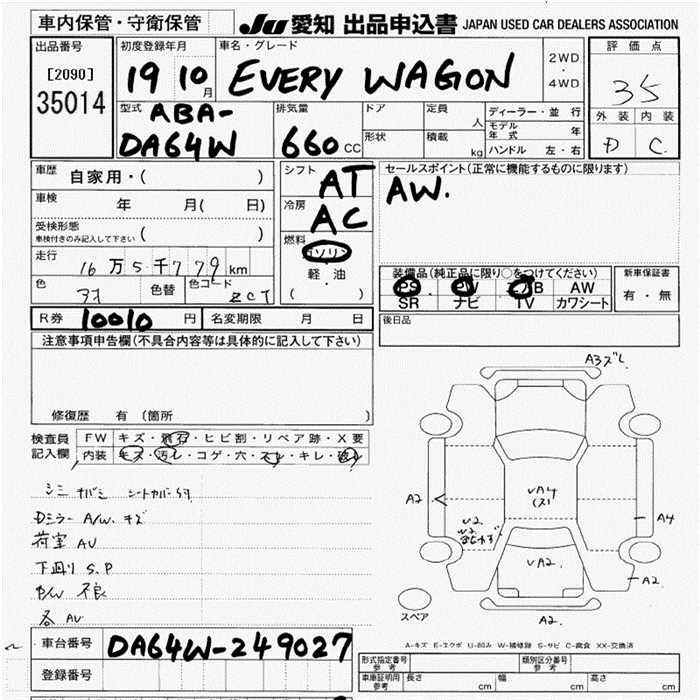 車内保管・守衛保管
Ju 愛知 出品申込書 JAPAN USED CAR DEALERS ASSOCIATION
出品番号
[2090]
35014
初度登録年月
19 10月
車名・グレード
EVERY WAGON
2WD
・
4WD
評価点
35
外装 内装
D C
型式 ABA-
DA64W
排気量
660 CC
ドア
形状
定員 人
積載 kg
ディーラー・並行
モデル年式 年
ハンドル 左・右
車歴 自家用・( )
車検 年 月( 日)
受検形態
車検付きのみ記入して下さい ( )
走行
16万5千779km
色 色替 色コード ZCT
シフト AT
冷房 AC
燃料
ガソリン
・
軽油
( )
セールスポイント(正常に機能するものに限ります)
AW.
装備品(純正品に限り○をつけてください)
PS PW エアB AW
SR ナビ TV カワシート
新車保証書
有・無
R券 10010 円 名変期限 月 日
後日品
注意事項申告欄(不具合内容等は具体的に記入して下さい)
修復歴 有 (箇所 )
検査員
記入欄
FW キズ・飛石・ヒビ割・リペア跡・X要
内装 キズ・汚レ・コゲ・穴・スレ・キレ・破レ
Dミラー A/W. キズ
荷室 AU
下廻り S.P
P/W 不良
各 AU
A3ズレ
A2
VA4
(ス)
A4
U2.
W2.
VA2.
A2.
A2.
スペア
A-キズ E-エクボ U-凹み W-補修跡 S-サビ C-腐食 XX-交換済
車台番号 DA64W-249027
登録番号
形式指定番号
参考
類別区分番号
参考
車庫証明用
参考
長さ cm 幅 cm 高さ cm